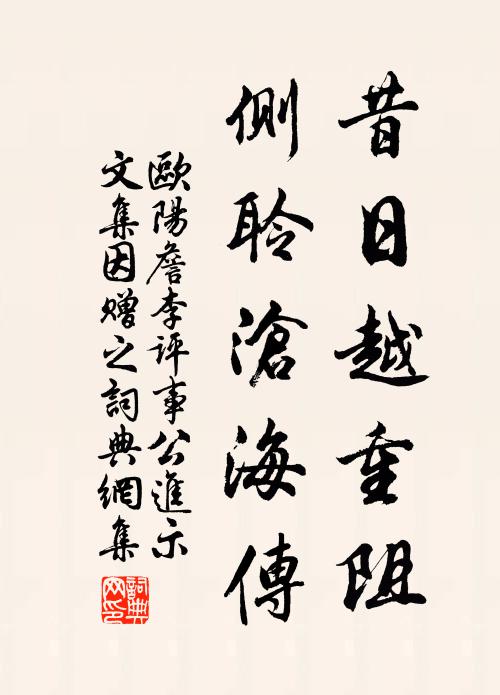 昔日越重阻
側聆滄海傳
歐陽詹李評事公進示
文集因贈之詞典網集
詞典網印